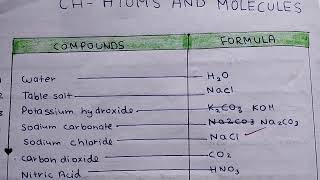 CH- ATOMS AND MOLECULES
COMPOUNDS FORMULA
Water H2O
Table salt NaCl
Potassium hydroxide K2CO3 KOH
Sodium carbonate Na2CO3 Na2CO3
Sodium chloride NaCl
Carbon dioxide CO2
Nitric Acid HNO3